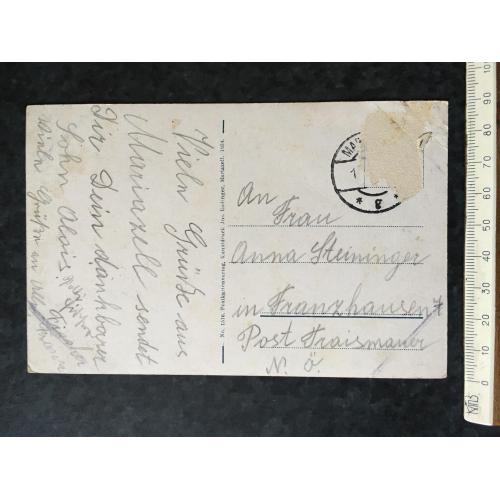 Viele Grüße aus
Mariazell sendet
Dir Dein dankbarer
Sohn Alois
viele Grüße an
No. Postkartenverlag, Kunstdruck Jos. Kuss, Mariazell. 1934.
MA
1
* 8 *
An
Frau
Anna Steininger
in Franzhausen 7
Post Traismauer
N. Ö.
10
20
30
40
50
60
70
80
90
100